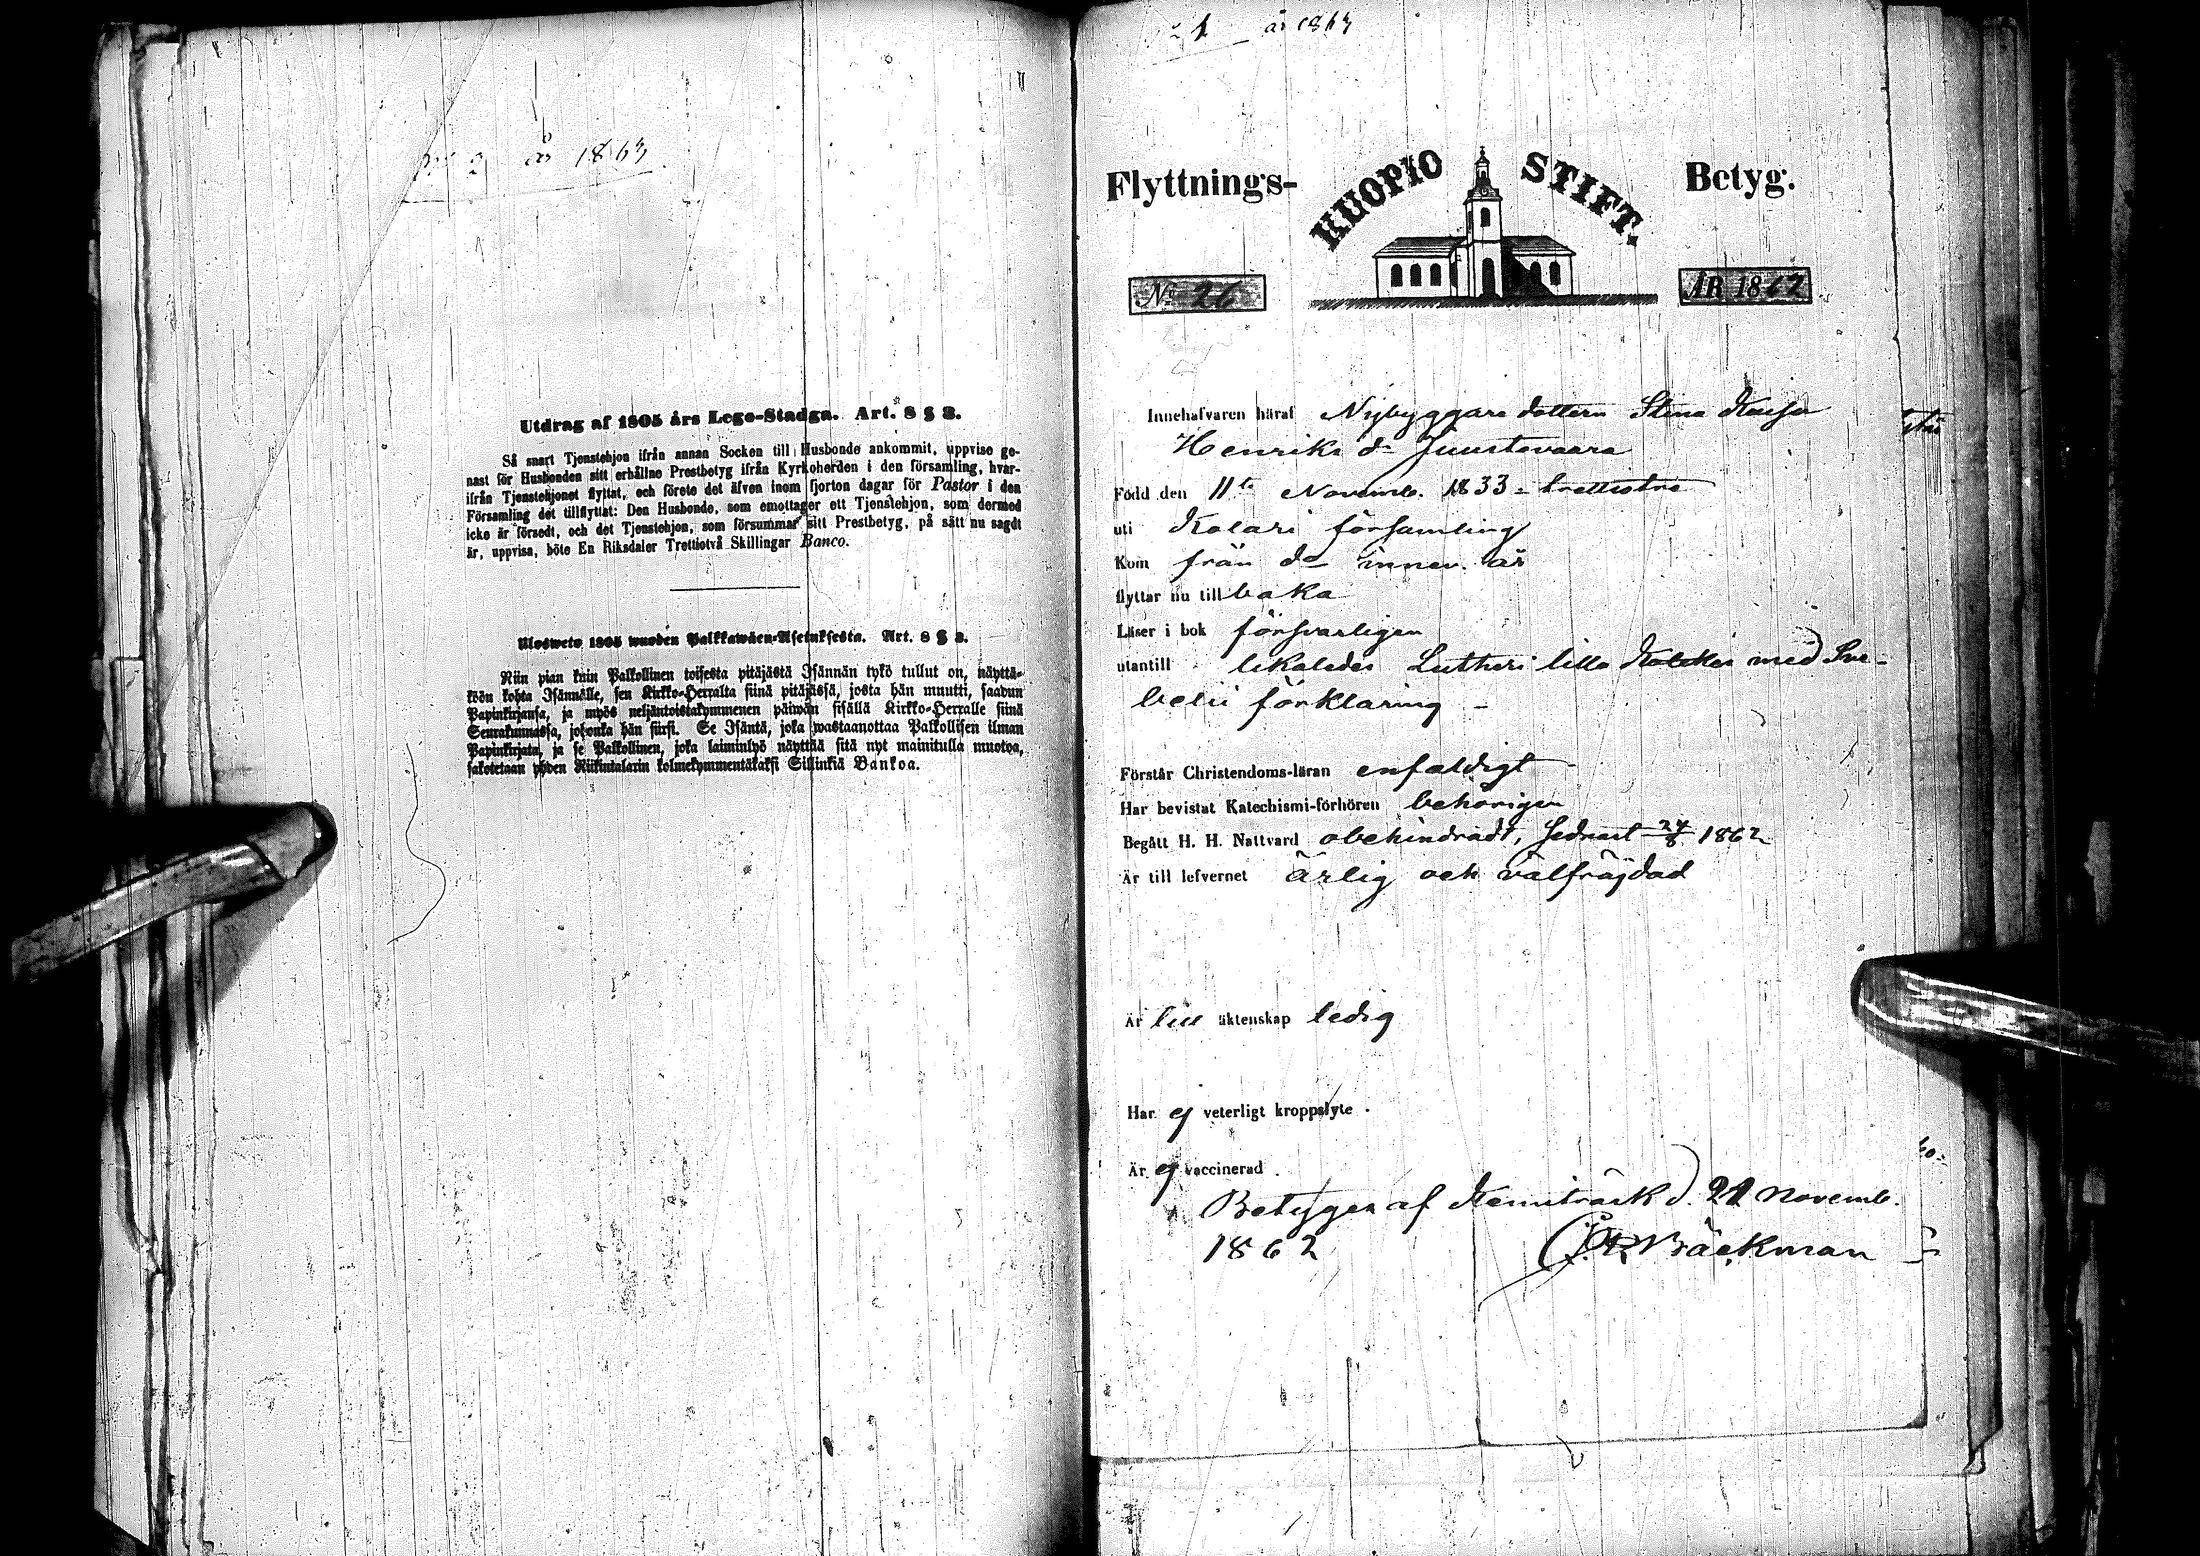 år 1863
Utdrag af 1805 års Lego-Stadga. Art. 8 § 3.
Så snart Tjenstehjon ifrån annan Socken till Husbonde ankommit, uppvise ge-
nast för Husbonden sitt erhållne Prestbetyg ifrån Kyrkoherden i den församling, hvar-
ifrån Tjenstehjonet flyttat, och förete det äfven inom fjorton dagar för Pastor i den
Församling det tillflyttat: Den Husbonde, som emottager ett Tjenstehjon, som dermed
icke är försedt, och det Tjenstehjon, som försummar sitt Prestbetyg, på sätt nu sagdt
är, uppvisa, böte En Riksdaler Trettiotvå Skillingar Banco.
Ulosweto 1805 wuoden Palkkawäen-Asetuksesta. Art. 8 § 3.
Niin pian kuin Palkollinen toisesta pitäjästä Isännän tykö tullut on, näyttä-
köön kohta Isännälle, sen Kirkko-Herralta siinä pitäjässä, josta hän muutti, saadun
Papinkirjansa, ja myös neljäntoistakymmenen päiwän sisällä Kirkko-Herralle siinä
Seurakunnassa, johonka hän siirsi. Se Isäntä, joka wastaanottaa Palkollisen ilman
Papinkirjata, ja se Palkollinen, joka laiminlyö näyttää sitä nyt mainitulla muotoa,
sakotetaan yhden Riikintalarin kolmekymmentäkaksi Sillinkiä Bankoa.
1 år 1863
Flyttnings- KUOPIO STIFT. Betyg.
No 26 ÅR 1862
Innehafvaren häraf Nybyggare dottern Stina Kaisa
Henriks dr Juustovaara
Född den 11te Novemb. 1833 = trettiotre
uti Kolari församling
Kom från do innev. år
flyttar nu tillbaka
Läser i bok försvarligen
utantill likaledes Lutheri lilla Kateches med Sve-
belii förklaring -
Förstår Christendoms-läran enfaldigt
Har bevistat Katechismi-förhören behörigen
Begått H. H. Nattvard obehindradt, sednast 24/8 1862
Är till lefvernet ärlig och välfräjdad
Är till äktenskap ledig
Har ej veterligt kroppslyte.
Är ej vaccinerad.
Betygar af Kemiträsk d. 21 Novemb.
1862 Bäckman